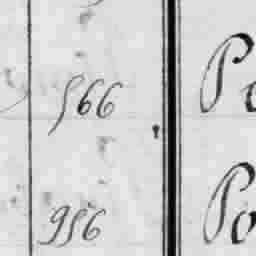 566 Po
956 Po